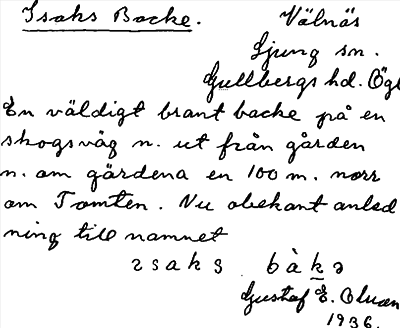 Isaks Backe. Välnäs
Ljung sn.
Gullbergs hd. Ögl
En väldigt brant backe på en
skogsväg n. ut från gården
n. om gärdena en 100 m. norr
om Tomten. Nu obekant anled
ning till namnet
isaks bàkə
Gustaf E. Olsson
1936.